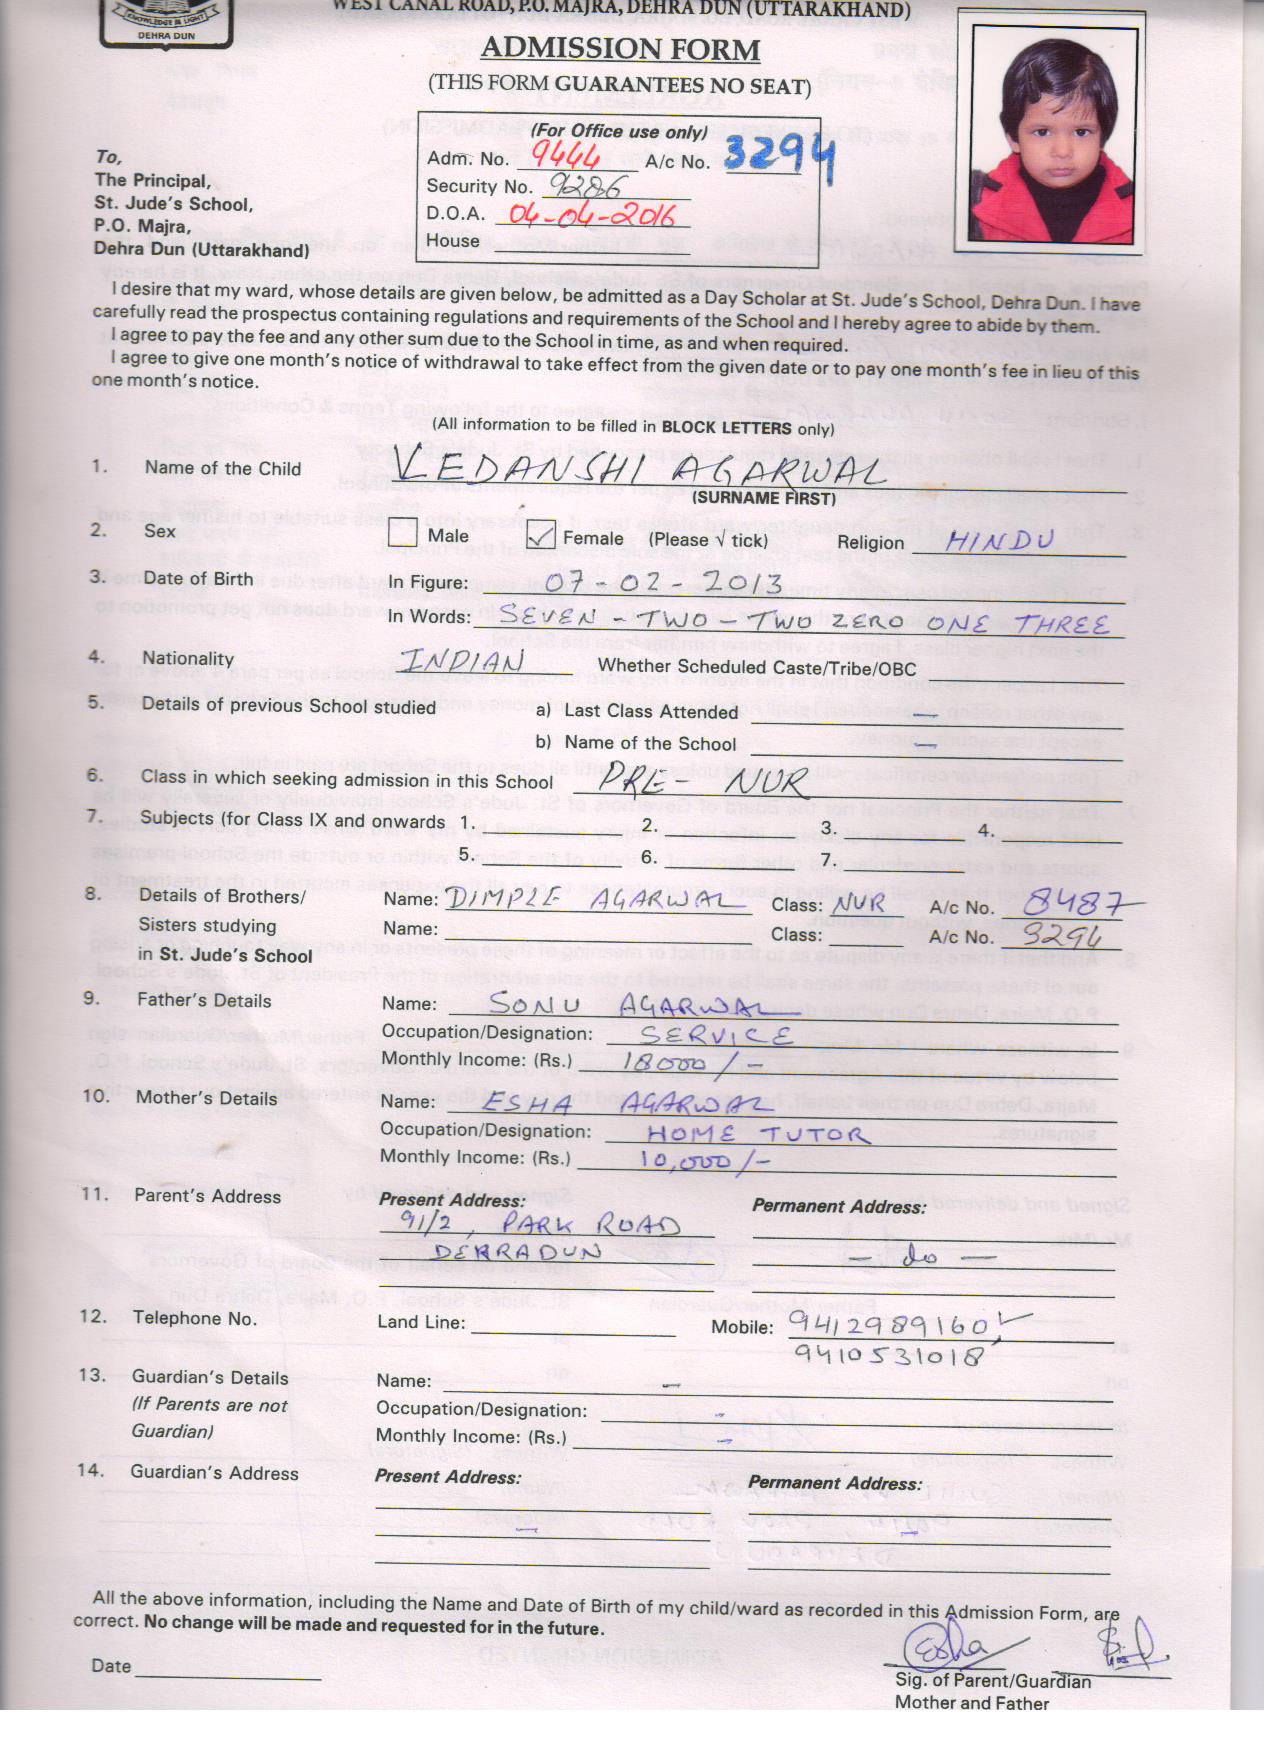 KNOWLEDGE is LIGHT
DEHRA DUN
WEST CANAL ROAD, P.O. MAJRA, DEHRA DUN (UTTARAKHAND)
ADMISSION FORM
(THIS FORM GUARANTEES NO SEAT)
(For Office use only)
Adm. No. 9444 A/c No. 3294
Security No. 9286
D.O.A. 04-04-2016
House
To,
The Principal,
St. Jude's School,
P.O. Majra,
Dehra Dun (Uttarakhand)
I desire that my ward, whose details are given below, be admitted as a Day Scholar at St. Jude's School, Dehra Dun. I have
carefully read the prospectus containing regulations and requirements of the School and I hereby agree to abide by them.
I agree to pay the fee and any other sum due to the School in time, as and when required.
I agree to give one month's notice of withdrawal to take effect from the given date or to pay one month's fee in lieu of this
one month's notice.
(All information to be filled in BLOCK LETTERS only)
1. Name of the Child VEDANSHI AGARWAL
(SURNAME FIRST)
2. Sex Male Female (Please √ tick) Religion HINDU
3. Date of Birth In Figure: 07-02-2013
In Words: SEVEN - TWO - TWO ZERO ONE THREE
4. Nationality INDIAN Whether Scheduled Caste/Tribe/OBC
5. Details of previous School studied a) Last Class Attended —
b) Name of the School —
6. Class in which seeking admission in this School PRE- NUR
7. Subjects (for Class IX and onwards 1. 2. 3. 4.
5. 6. 7.
8. Details of Brothers/ Name: DIMPLE AGARWAL Class: NUR A/c No. 8487
Sisters studying Name: Class: A/c No. 3294
in St. Jude's School
9. Father's Details Name: SONU AGARWAL
Occupation/Designation: SERVICE
Monthly Income: (Rs.) 18000/-
10. Mother's Details Name: ESHA AGARWAL
Occupation/Designation: HOME TUTOR
Monthly Income: (Rs.) 10,000/-
11. Parent's Address Present Address: Permanent Address:
91/2, PARK ROAD
DEHRADUN — do —
12. Telephone No. Land Line: Mobile: 9412989160,
9410531018
13. Guardian's Details Name: —
(If Parents are not Occupation/Designation: -
Guardian) Monthly Income: (Rs.) -
14. Guardian's Address Present Address: Permanent Address:
— —
All the above information, including the Name and Date of Birth of my child/ward as recorded in this Admission Form, are
correct. No change will be made and requested for in the future.
Esha
Date
Sig. of Parent/Guardian
Mother and Father